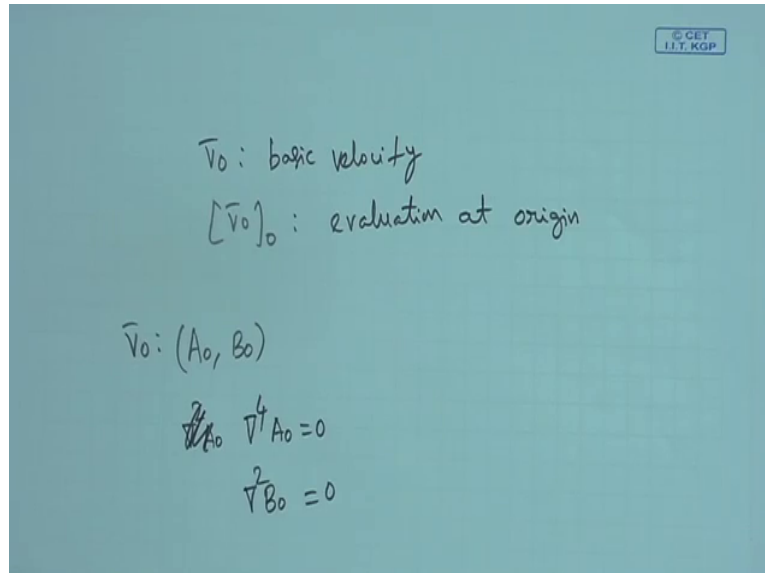 © CET
I.I.T. KGP
V̄₀ : basic velocity
[V̄₀]₀ : evaluation at origin
V̄₀ : (A₀, B₀)
∇⁴A₀ = 0
∇²B₀ = 0